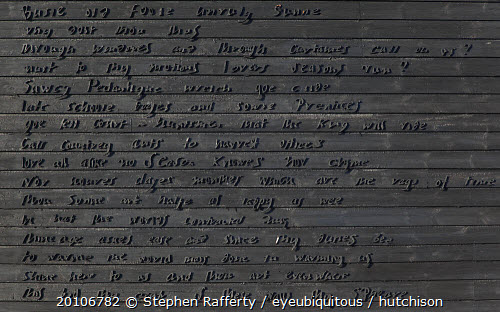 Busie old Foole unruly Sunne
why dost thou thus
Through windowes and through curtaines call on us?
must to thy motions lovers seasons run?
Sawcy Pedantique wretch goe chide
late schoole boyes and sowre Prentices
goe tell Court-huntsmen that the King will ride
Call Countrey ants to harvest offices
love all alike no season knowes nor clyme
Nor houres dayes months which are the rags of time
Thou Sunne art halfe as happy as wee
in that the worlds contracted thus
Thine age askes ease and since thy duties bee
to warme the world thats done in warming us
Shine here to us and thou art everywhere
This bed thy center is these walls thy spheare
20106782 © Stephen Rafferty / eyeubiquitous / hutchison